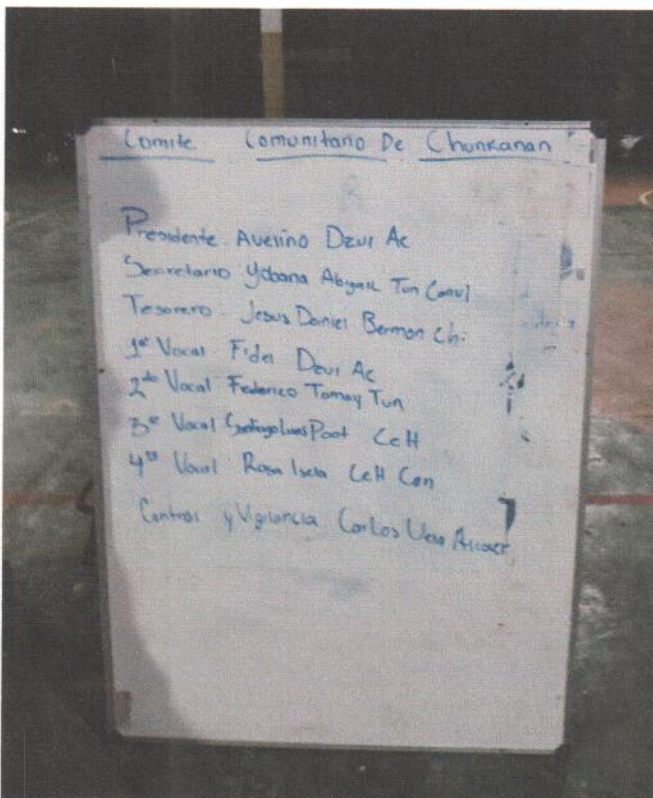 Comite Comunitario De Chunkanan
Presidente Avelino Dzul Ac
Secretario Yobana Abigail Tun Canul
Tesorero Jesus Daniel Bermon Chi.
1er Vocal Fidel Dzul Ac
2do Vocal Federico Tamay Tun
3er Vocal Santiago Luis Poot CeH
4to Vocal Rosa Isela CeH Can
Control y Vigilancia Carlos